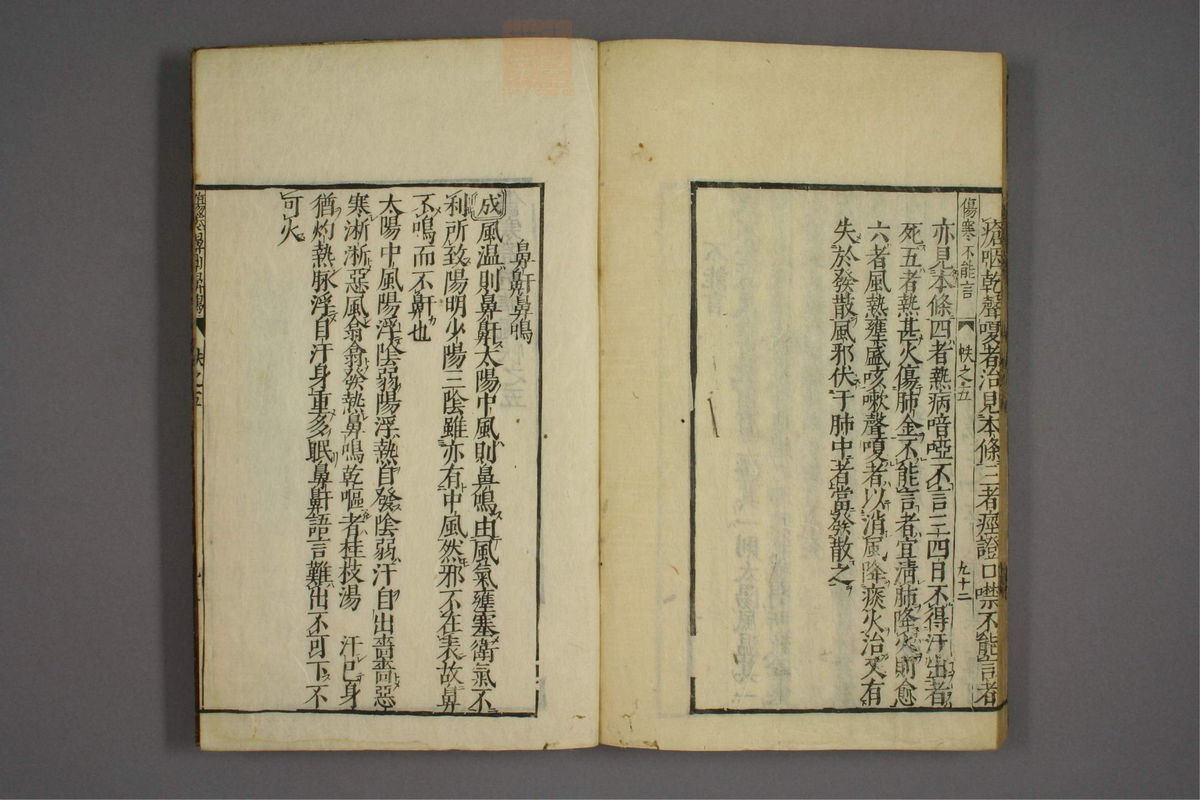 瘡咽乾聲嗄者治見本條三者痙證口噤不能言者
傷寒不能言　帙之五　九十二
亦見本條四者熱病喑啞不言三四日不得汗出者
死五者熱甚火傷肺金不能言者宜清肺降火則愈
六者風熱壅盛咳嗽聲嗄者以消風降痰火治又有
失於發散風邪伏于肺中者當發散之
鼻鼾鼻鳴
成風温則鼻鼾太陽中風則鼻鳴由風氣壅塞衛氣不
利所致陽明少陽三陰雖亦有中風然邪不在表故鼻
不鳴而不鼾也
太陽中風陽浮陰弱陽浮熱自發陰弱汗自出嗇嗇惡
寒淅淅惡風翕翕發熱鼻鳴乾嘔者桂枝湯　汗已身
猶灼熱脉浮自汗身重多眠鼻鼾語言難出不可下不
可火
帙之五